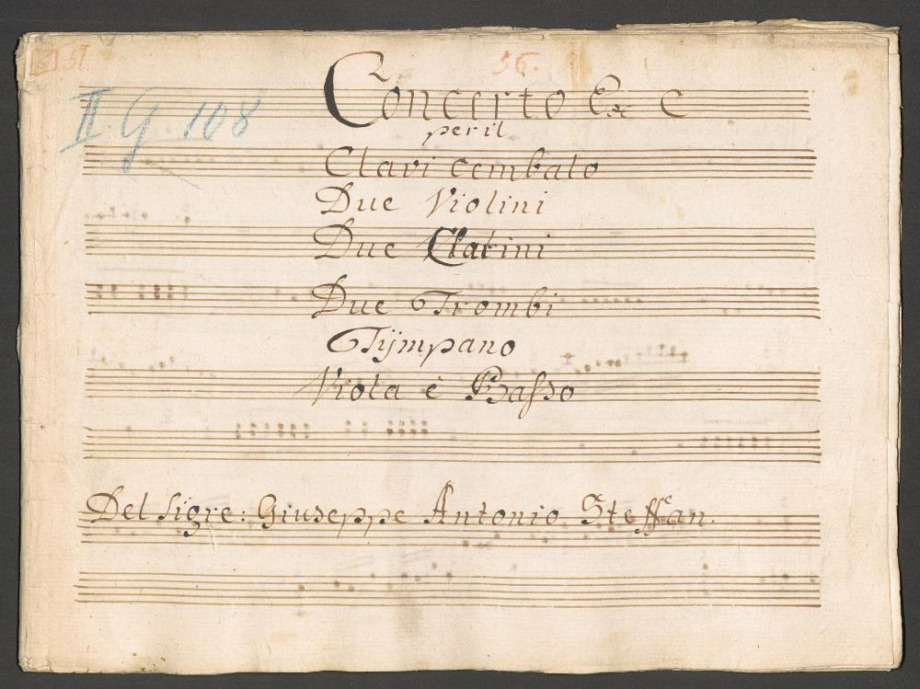 57.
56.
II. G. 108
Concerto Ex C
per il
Clavi cembalo
Due Violini
Due Clarini
Due Trombi
Tÿmpano
Viola è Basso
Del Sigre: Giuseppe Antonio Steffan.